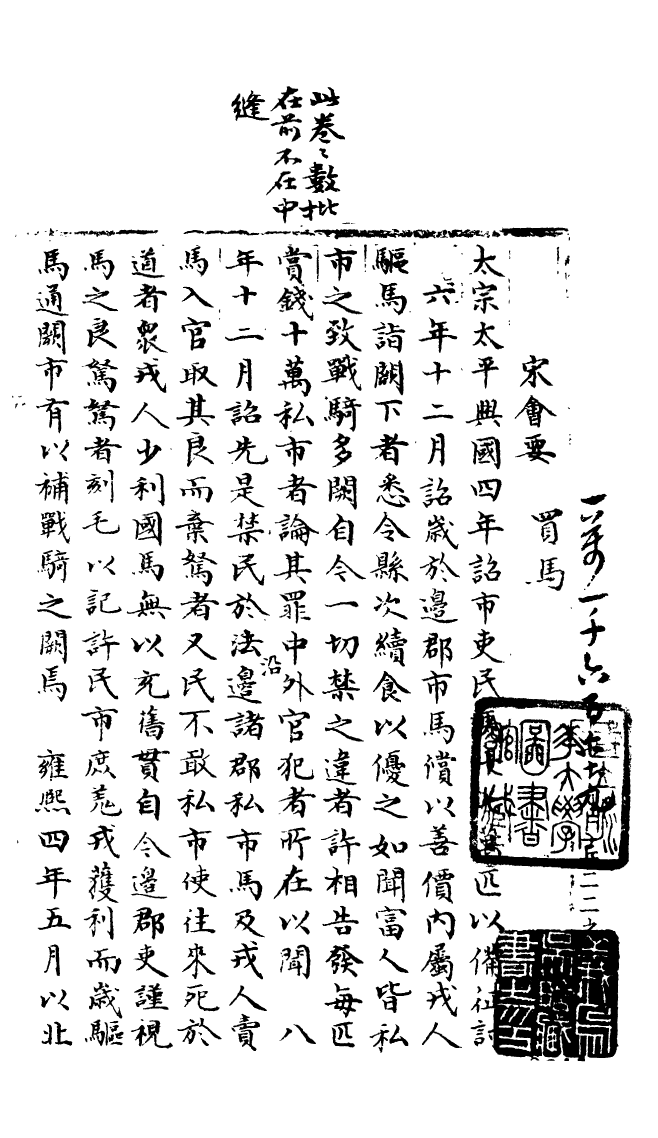 此卷〻數批
在前不在中
縫
一萬一千六百
宋會要
買馬
太宗太平興國四年詔市吏民馬十七萬匹以備征討
六年十二月詔歲於邊郡市馬償以善價內屬戎人
驅馬詣闕下者悉令縣次續食以優之如聞富人皆私
市之致戰騎多闕自今一切禁之違者許相告發每匹
賞錢十萬私市者論其罪中外官犯者所在以聞 八
年十二月詔先是禁民於法邊諸郡私市馬及戎人賣
沿
馬入官取其良而棄駑者又民不敢私市使往來死於
道者衆戎人少利國馬無以充舊貫自今邊郡吏謹視
馬之良駑駑者刻毛以記許民市庶羌戎獲利而歲驅
馬通關市有以補戰騎之闕馬 雍熙四年五月以北